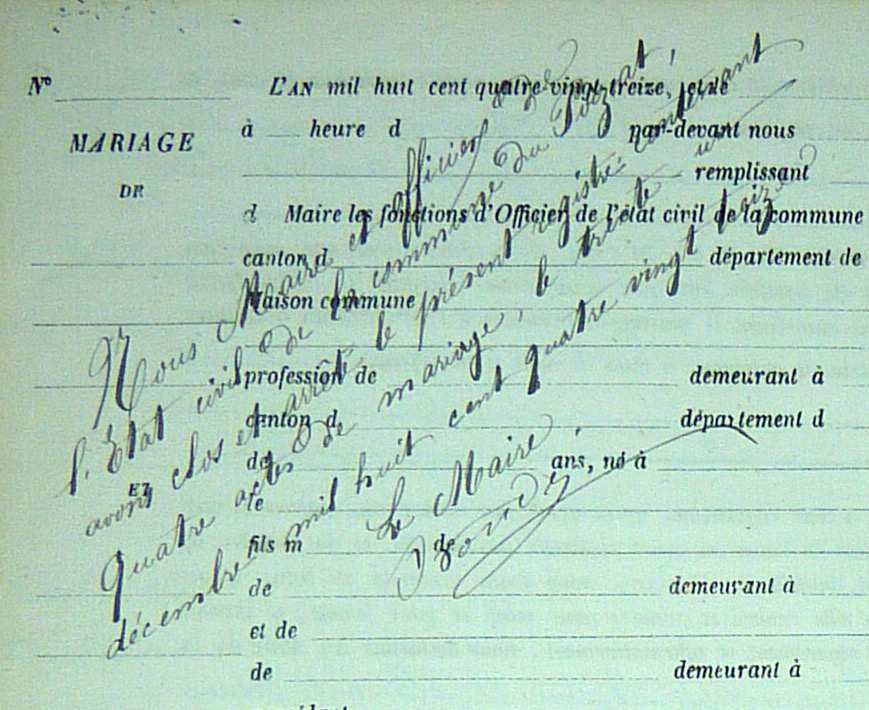 N° L'AN mil huit cent quatre-vingt-treize, et le
MARIAGE à heure d par-devant nous
DE remplissant
d Maire les fonctions d'Officier de l'état civil de la commune
canton d département de
Maison commune
profession de demeurant à
canton d département d
de ans, né à
ET
le
fils m de
de demeurant à
et de
de demeurant à
Nous Maire et officier de
l'Etat civil de la commune du Poizat,
avons clos et arrêté le présent registre contenant
quatre actes de mariage, le trente un
décembre mil huit cent quatre vingt treize
Le Maire,